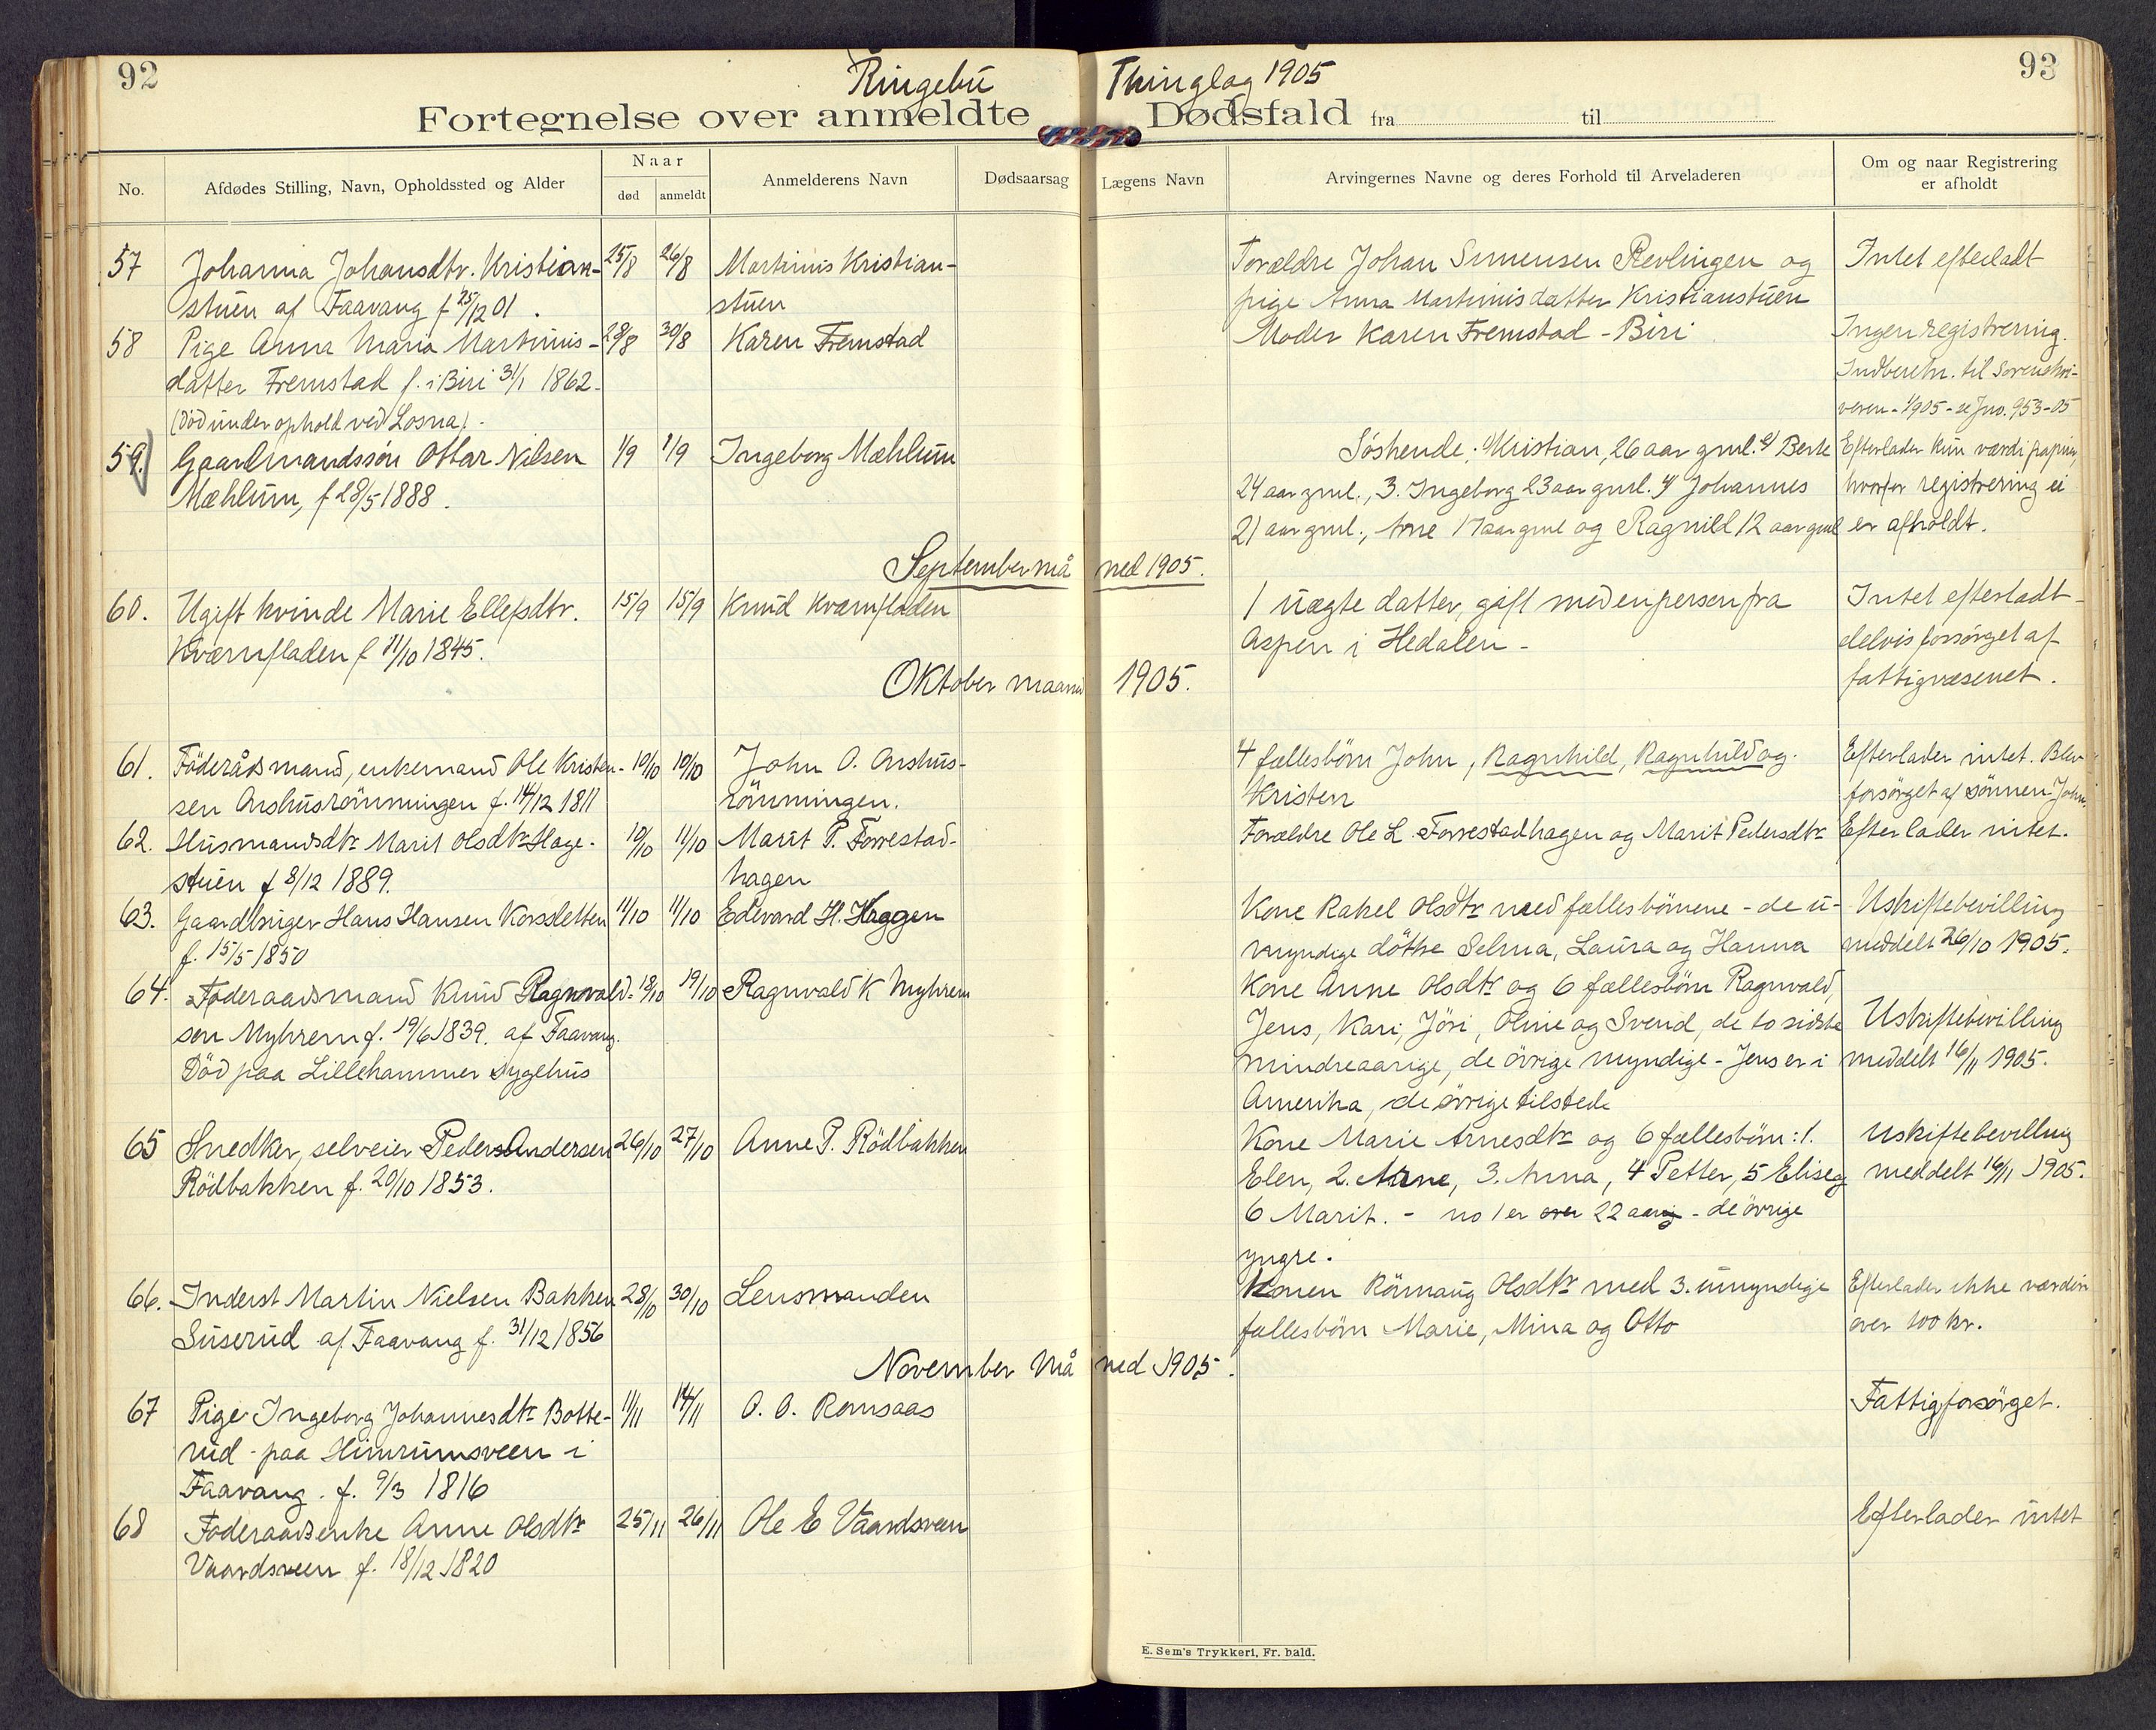 92
Ringebu Thinglag 1905
93
Fortegnelse over anmeldte Dødsfald fra til
No.
Afdødes Stilling, Navn, Opholdssted og Alder
Naar
død anmeldt
Anmelderens Navn
Dødsaarsag
Lægens Navn
Arvingernes Navne og deres Forhold til Arveladeren
Om og naar Registrering
er afholdt
57 Johanna Johansdtr. Kristian- 25/8 26/8 Martinus Kristian- Forældre Johan Simensen Revlingen og Intet efterladt
stuen af Faavang f 25/12 01. stuen pige Anna Martinusdatter Kristianstuen
58 Pige Anna Maria Martinus- 28/8 30/8 Karen Fremstad Moder Karen Fremstad - Biri Ingen registrering.
datter Fremstad f. i Biri 31/1 1862. Indberetn. til Sorenskri-
(Død under ophold ved Losna). veren - 1/9 05 - se Jno. 953-05
59.) Gaardmandssøn Ottar Nilsen 1/9 1/9 Ingeborg Mæhlum Søskende: 1/ Kristian, 26 aar gml. 2/ Berte Efterlader kun værdipapirer,
Mæhlum, f 28/5 1888. 24 aar gml., 3. Ingeborg 23 aar gml. 4/ Johannes hvorfor registrering ei
21 aar gml., Arne 17 aar gml og Ragnild 12 aar gml er afholdt.
September måned 1905.
60. Ugift kvinde Marie Ellefsdtr. 15/9 15/9 Knud Kværnfladen 1 uægte datter, gift med en person fra Intet efterladt -
Kværnfladen f 11/10 1845. Aspen i Hedalen - delvis forsørget af
fattigvæsenet.
Oktober maaned 1905.
61. Föderådsmand, enkemand Ole Kristen- 10/10 10/10 John O. Onshus- 4 fællesbörn John, Ragnhild, Ragnhild og Efterlader intet. Blev
sen Onshusrönningen f. 14/12 1811 rönningen. Kristen forsörget af sönnen John.
62. Husmandsdtr Marit Olsdtr Hage- 10/10 11/10 Marit P. Forrestad- Forældre Ole L. Forrestadhagen og Marit Pedersdtr Efterlader intet.
stuen f 8/12 1889. hagen
63. Gaardbruger Hans Hansen Korsletten 11/10 11/10 Edevard H. Haggen Kone Rakel Olsdtr med fællesbörnene - de u- Uskiftebevilling
f. 15/5 1850 myndige döttre Selma, Laura og Hanna meddelt 26/10 1905.
64. Foderaadsmand Knud Ragnvald- 18/10 19/10 Ragnvald K Myhrem Kone Anne Olsdtr og 6 fællesbörn Ragnvald,
sen Myhrem f. 19/6 1839. af Faavang. Jens, Kari, Jöri, Oline og Svend, de to sidste Uskiftebevilling
Död paa Lillehammer sygehus mindreaarige, de övrige myndige - Jens er i meddelt 16/11 1905.
Amerika, de övrige tilstede
65 Snedker, selveier Peder Andersen 26/10 27/10 Anne P. Rödbakken Kone Marie Arnesdtr og 6 fællesbörn: 1. Uskiftebevilling
Rödbakken f. 20/10 1853. Elen, 2. Arne, 3. Anna, 4 Petter, 5 Elise og meddelt 16/11 1905.
6 Marit. - no 1 er over 22 aarig - de övrige
yngre.
66. Inderst Martin Nielsen Bakken 28/10 30/10 Lensmanden Konen Rönnaug Olsdtr med 3. umyndige Efterlader ikke værdier
Suserud af Faavang f. 31/12 1856 fællesbörn Marie, Mina og Otto over 100 kr.
November måned 1905.
67 Pige Ingeborg Johannesdtr Botte- 11/11 14/11 O. O. Romsaas Fattigforsörget.
rud - paa Himrumsveen i
Faavang. f. 9/3 1816
68 Foderaadsenke Anne Olsdtr 25/11 26/11 Ole E Vaardsveen Efterlader intet
Vaardsveen f. 18/12 1820
E. Sem's Trykkeri, Fr. hald.